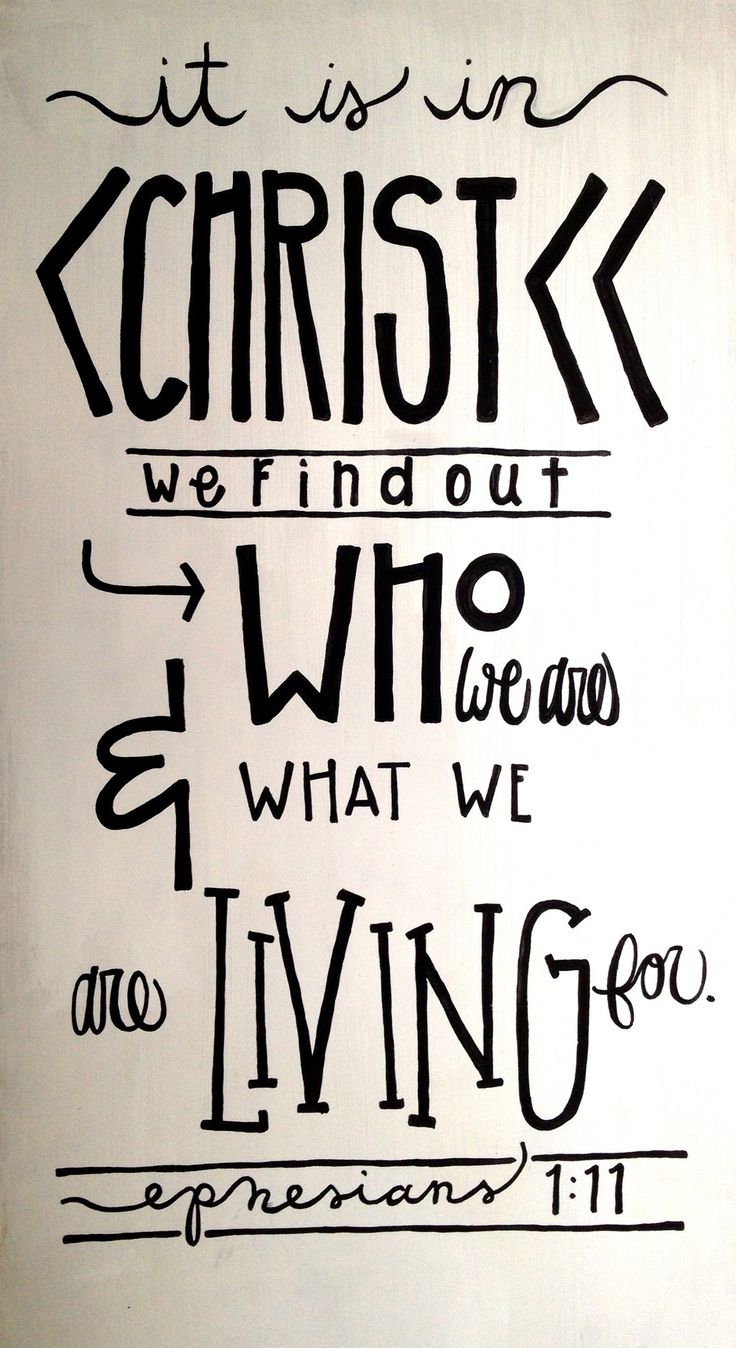 it is in
CHRIST
we find out
WHO we are
& WHAT WE
are LIVING for.
ephesians 1:11